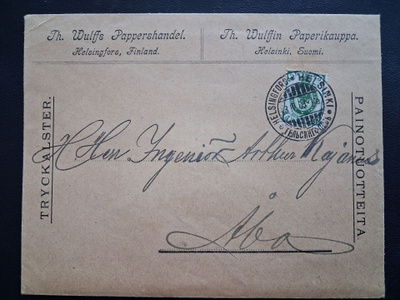 Th. Wulffs Pappershandel.
Helsingfors, Finland.
Th. Wulffin Paperikauppa.
Helsinki, Suomi.
HELSINGFORS * HELSINKI
ГЕЛЬСИНГФОРСЪ
TRYCKALSTER.
PAINOTUOTTEITA.
Herr Ingeniör Arthur Majanus
Åbo